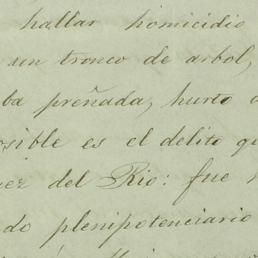 hallar homicidio
un tronco de arbol,
ba preñada, hurto
osible es el delito qu
ez del Rio: fue
do plenipotenciario